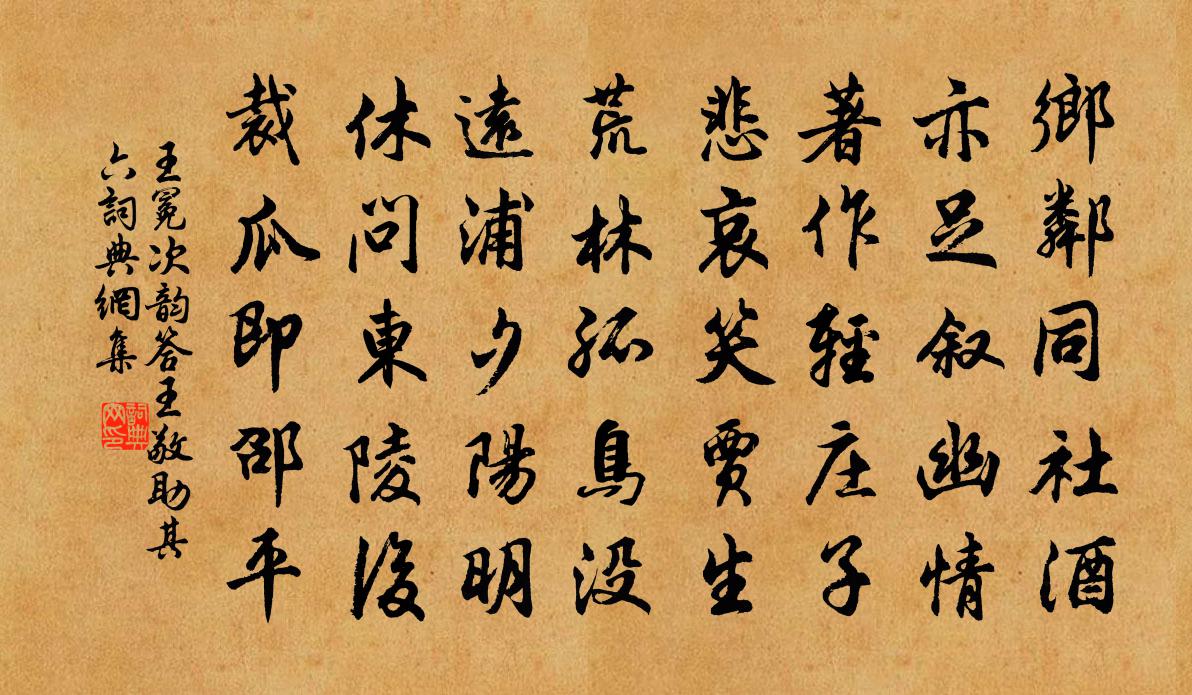 鄉鄰同社酒
亦足叙幽情
著作輕庄子
悲哀笑賈生
荒林孤鳥没
遠浦夕陽明
休問東陵後
裁瓜即邵平
王冕次韵答王敬助其
六詞典網集
詞典
网印